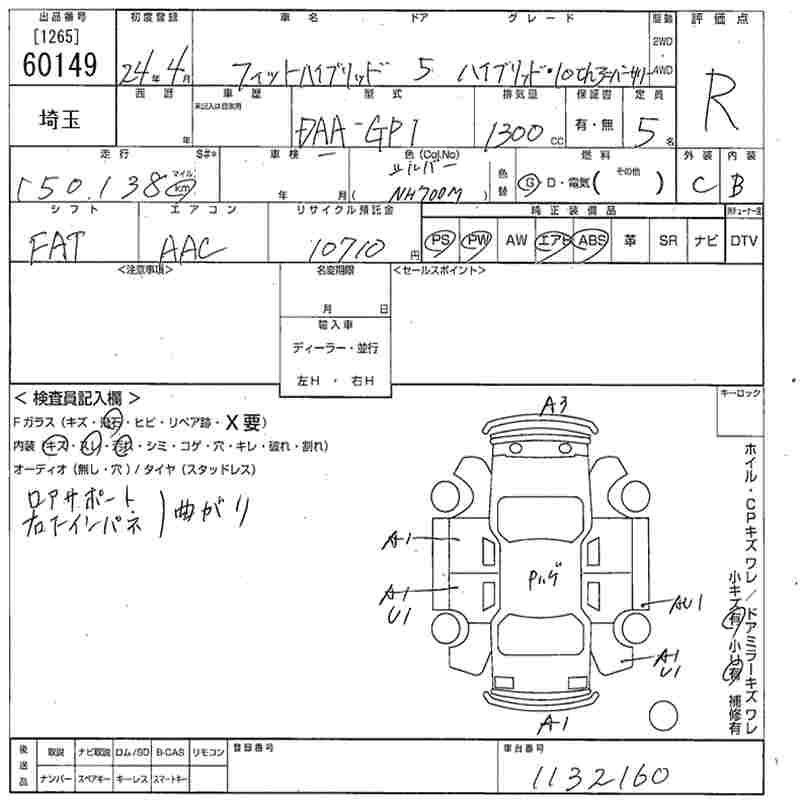 出品番号 初度登録 車名 ドア グレード 駆動 評価点
[1265]
60149
24年4月 フィットハイブリッド 5 ハイブリッド・10thアニバーサリー 2WD 4WD R
埼玉 西暦 車歴 型式 排気量 保証書 定員
未記入は自家用
年 DAA-GP1 1300cc 有・無 5名
走行 S#* 車検 色(Col.No) 燃料 外装 内装
150,138 マイル km 年 月 シルバー (NH700M) 色替 G・D・電気( その他 ) C B
シフト エアコン リサイクル預託金 純正装備品
FAT AAC 10710円 PS PW AW エアB ABS 革 SR ナビ DTV
<注意事項> 名変期限 <セールスポイント>
月 日
輸入車
ディーラー・並行
左H・右H
<検査員記入欄> キーロック
Fガラス(キズ・飛石・ヒビ・リペア跡・X要)
内装(キズ・スレ・汚れ・シミ・コゲ・穴・キレ・破れ・割れ)
オーディオ(無し・穴)/タイヤ(スタッドレス)
ロアサポート
右下インパネ )曲がり
A3
A1
A1
U1
Pハゲ
AU1
A1
U1
A1
ホイル・CPキズワレ/ドアミラーキズワレ
小キズ有 小U有 補修有
後送品 取説 ナビ取説 ロム/SD B-CAS リモコン 登録番号 車台番号
ナンバー スペアキー キーレス スマートキー 1132160